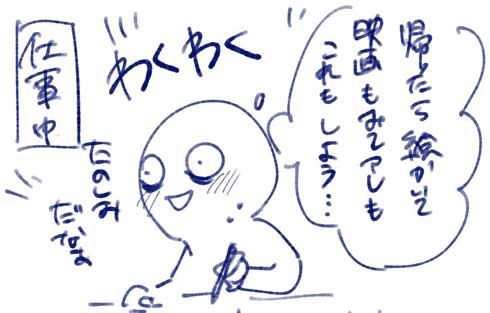 仕事中
わくわく
帰ったら絵かいて
映画もみてアレも
これもしよう…
たのしみ
だなぁ